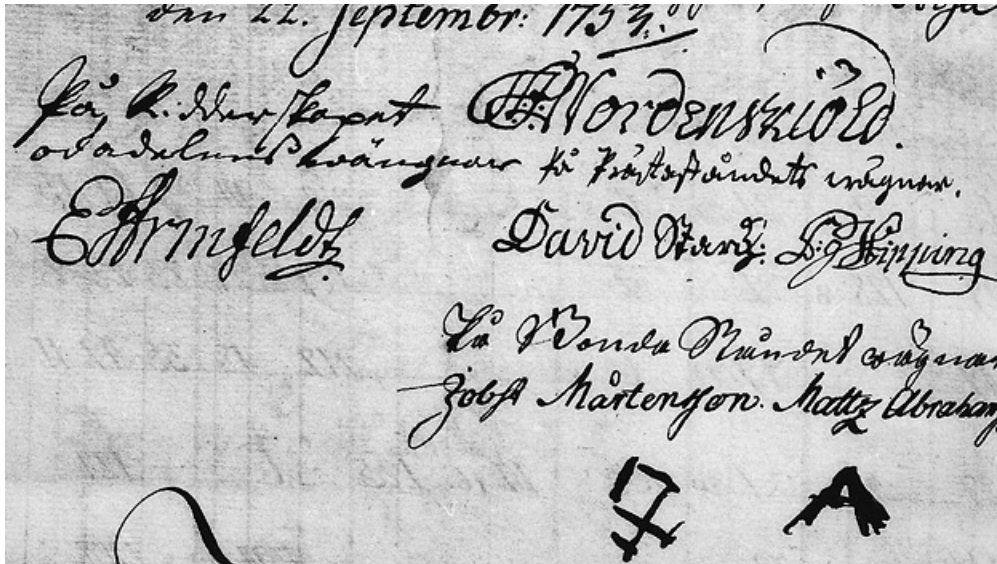 den 22. Septembr: 1753.
På Ridderskapet
och adelens wängnar
C F Nordenskiöld.
på Prästeståndets wägnar.
Armfeldt
David Starck: Kipping
På Bonde Ståndets wägnar
Jobst Mårtenson. Mattz Abraham
A